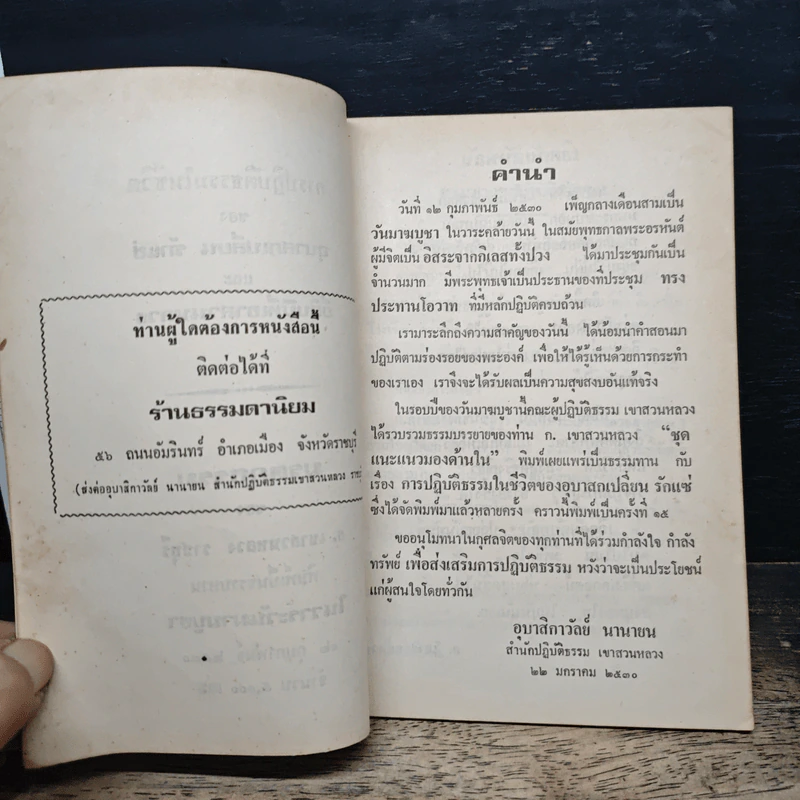 ท่านผู้ใดต้องการหนังสือนี้
ติดต่อได้ที่
ร้านธรรมดานิยม
๕๖ ถนนอัมรินทร์ อำเภอเมือง จังหวัดราชบุรี
(ส่งต่ออุบาสิกาวัลย์ นานายน สำนักปฏิบัติธรรมเขาสวนหลวง
คำนำ
วันที่ ๑๒ กุมภาพันธ์ ๒๕๓๐ เพ็ญกลางเดือนสามเป็น
วันมาฆบูชา ในวาระคล้ายวันนี้ ในสมัยพุทธกาลพระอรหันต์
ผู้มีจิตเป็น อิสระจากกิเลสทั้งปวง ได้มาประชุมกันเป็น
จำนวนมาก มีพระพุทธเจ้าเป็นประธานของที่ประชุม ทรง
ประทานโอวาท ที่มีหลักปฏิบัติครบถ้วน
เรามาระลึกถึงความสำคัญของวันนี้ ได้น้อมนำคำสอนมา
ปฏิบัติตามร่องรอยของพระองค์ เพื่อให้ได้รู้เห็นด้วยการกระทำ
ของเราเอง เราจึงจะได้รับผลเป็นความสุขสงบอันแท้จริง
ในรอบปีของวันมาฆบูชานี้คณะผู้ปฏิบัติธรรม เขาสวนหลวง
ได้รวบรวมธรรมบรรยายของท่าน ก. เขาสวนหลวง “ชุด
แนะแนวมองด้านใน” พิมพ์เผยแพร่เป็นธรรมทาน กับ
เรื่อง การปฏิบัติธรรมในชีวิตของอุบาสกเปลี่ยน รักแซ่
ซึ่งได้จัดพิมพ์มาแล้วหลายครั้ง คราวนี้พิมพ์เป็นครั้งที่ ๑๕
ขออนุโมทนาในกุศลจิตของทุกท่านที่ได้ร่วมกำลังใจ กำลัง
ทรัพย์ เพื่อส่งเสริมการปฏิบัติธรรม หวังว่าจะเป็นประโยชน์
แก่ผู้สนใจโดยทั่วกัน
อุบาสิกาวัลย์ นานายน
สำนักปฏิบัติธรรม เขาสวนหลวง
๒๒ มกราคม ๒๕๓๐